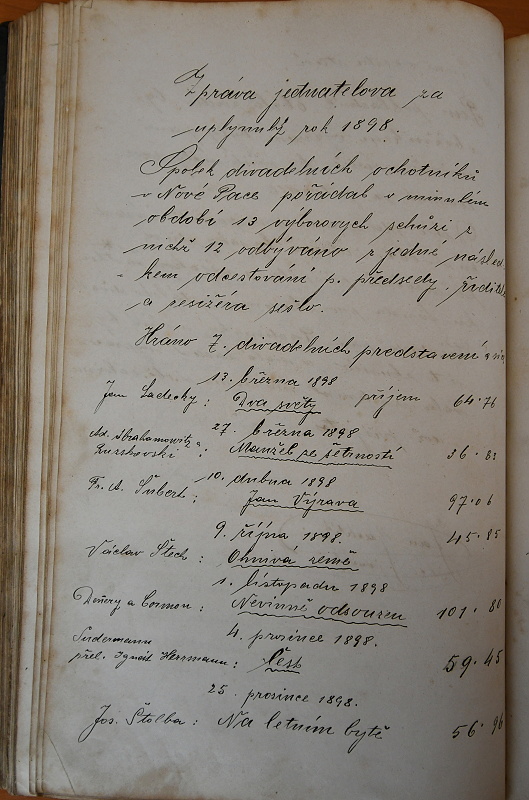 Zpráva jednatelova za
uplynulý rok 1898.
Spolek divadelních ochotníků
v Nové Pace pořádal v minulém
období 13 výborových schůzí z
nichž 12 odbýváno z jedné násled-
kem odcestování p. předsedy, řidit.
a resižéra sešlo.
Hráno 7. divadelních představení a
13. března 1898
Jan Ladecký: Dva světy příjem 64.76
27. března 1898
Ad. Abrahamowitz a
Ruszkovski: Manžel ze šetrnosti 36.83
10. dubna 1898
Fr. A. Šubert: Jan Výrava 97.06
9. října 1898. 45.85
Václav Štech: Ohnivá země
1. listopadu 1898
Denery a Cormon: Nevinně odsouzen 101.80
4. prosince 1898.
Sudermann
přel. Ignát Herrmann: Čest 59.45
25. prosince 1898.
Jos. Štolba: Na letním bytě 56.96